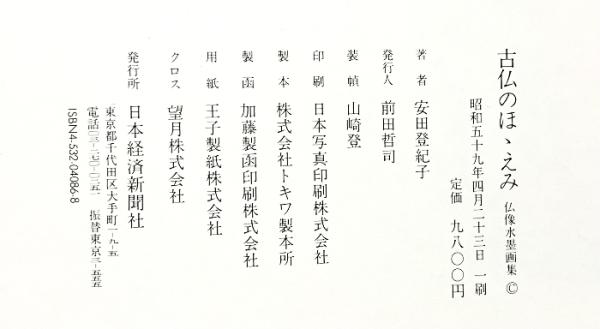 古仏のほゝえみ 仏像水墨画集 ©
昭和五十九年四月二十三日 一刷
定価 九八〇〇円
著者 安田登紀子
発行人 前田哲司
装幀 山崎登
印刷 日本写真印刷株式会社
製本 株式会社トキワ製本所
製函 加藤製函印刷株式会社
用紙 王子製紙株式会社
クロス 望月株式会社
発行所 日本経済新聞社
東京都千代田区大手町一-九-五
電話〇三-二七〇-〇二五一 振替東京三-五五五
ISBN4-532-04086-8